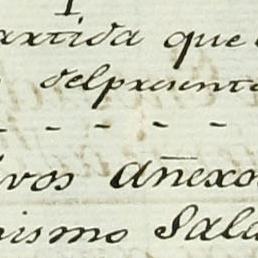 artida que
delpresente
- - - - -
vos añexo
mismo Sala